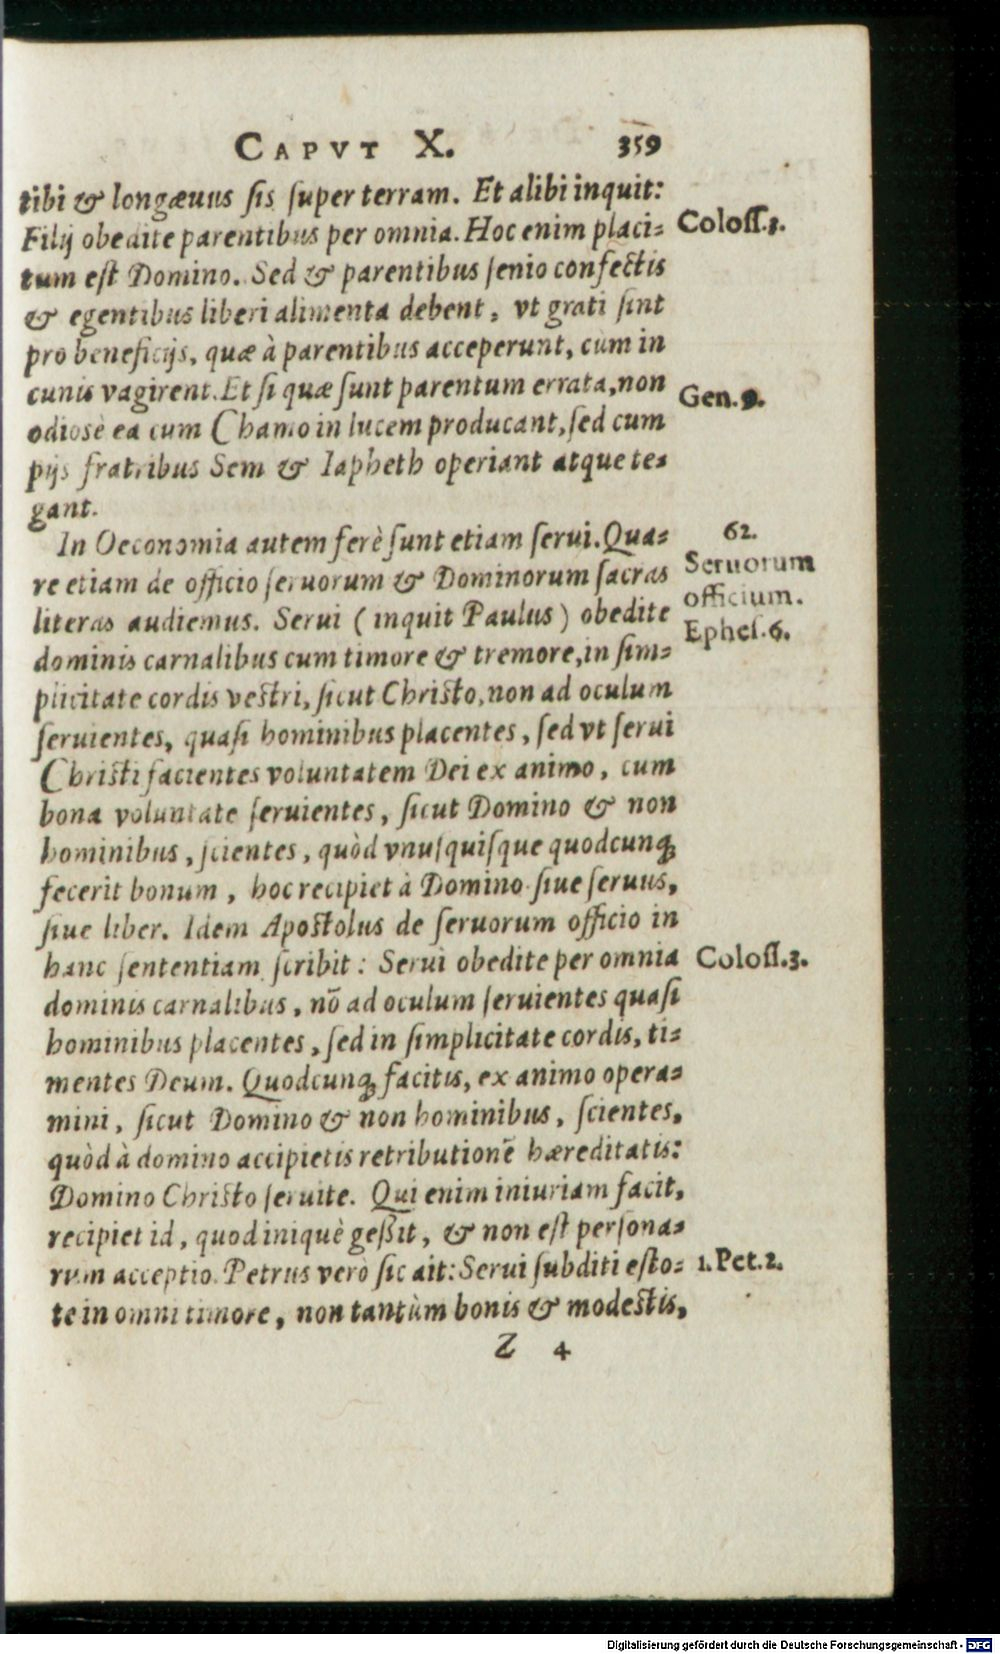 CAPVT X. 359
tibi & longæuus sis super terram. Et alibi inquit:
Filij obedite parentibus per omnia. Hoc enim placi-
Coloss.3.
tum est Domino. Sed & parentibus senio confectis
& egentibus liberi alimenta debent, vt grati sint
pro beneficijs, quæ à parentibus acceperunt, cùm in
cunis vagirent. Et si quæ sunt parentum errata, non
Gen.9.
odiosè ea cum Chamo in lucem producant, sed cum
pijs fratribus Sem & Iapheth operiant atque te-
gant.
In Oeconomia autem ferè sunt etiam serui. Qua-
62.
re etiam de officio seruorum & Dominorum sacras
Seruorum
literas audiemus. Serui (inquit Paulus) obedite
officium.
Ephes.6.
dominis carnalibus cum timore & tremore, in sim-
plicitate cordis vestri, sicut Christo, non ad oculum
seruientes, quasi hominibus placentes, sed vt serui
Christi facientes voluntatem Dei ex animo, cum
bona voluntate seruientes, sicut Domino & non
hominibus, scientes, quòd vnusquisque quodcunq;
fecerit bonum, hoc recipiet à Domino siue seruus,
siue liber. Idem Apostolus de seruorum officio in
hanc sententiam scribit: Serui obedite per omnia
Coloss.3.
dominis carnalibus, nō ad oculum seruientes quasi
hominibus placentes, sed in simplicitate cordis, ti-
mentes Deum. Quodcunq; facitis, ex animo opera-
mini, sicut Domino & non hominibus, scientes,
quòd à domino accipietis retributionē hæreditatis:
Domino Christo seruite. Qui enim iniuriam facit,
recipiet id, quod iniquè geßit, & non est persona-
rum acceptio. Petrus verò sic ait: Serui subditi esto-
1.Pet.2.
te in omni timore, non tantùm bonis & modestis,
Z 4
Digitalisierung gefördert durch die Deutsche Forschungsgemeinschaft - DFG